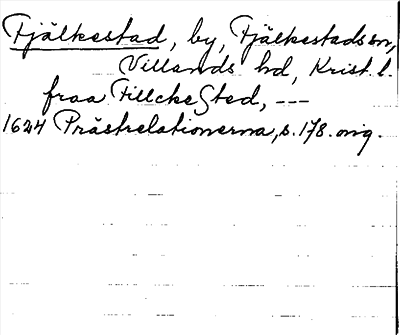 Fjälkestad, by, Fjälkestads sn,
Villands hd, Krist. l.
fraa FillckeSted, ---
1624 Prästrelationerna, s. 178. orig.